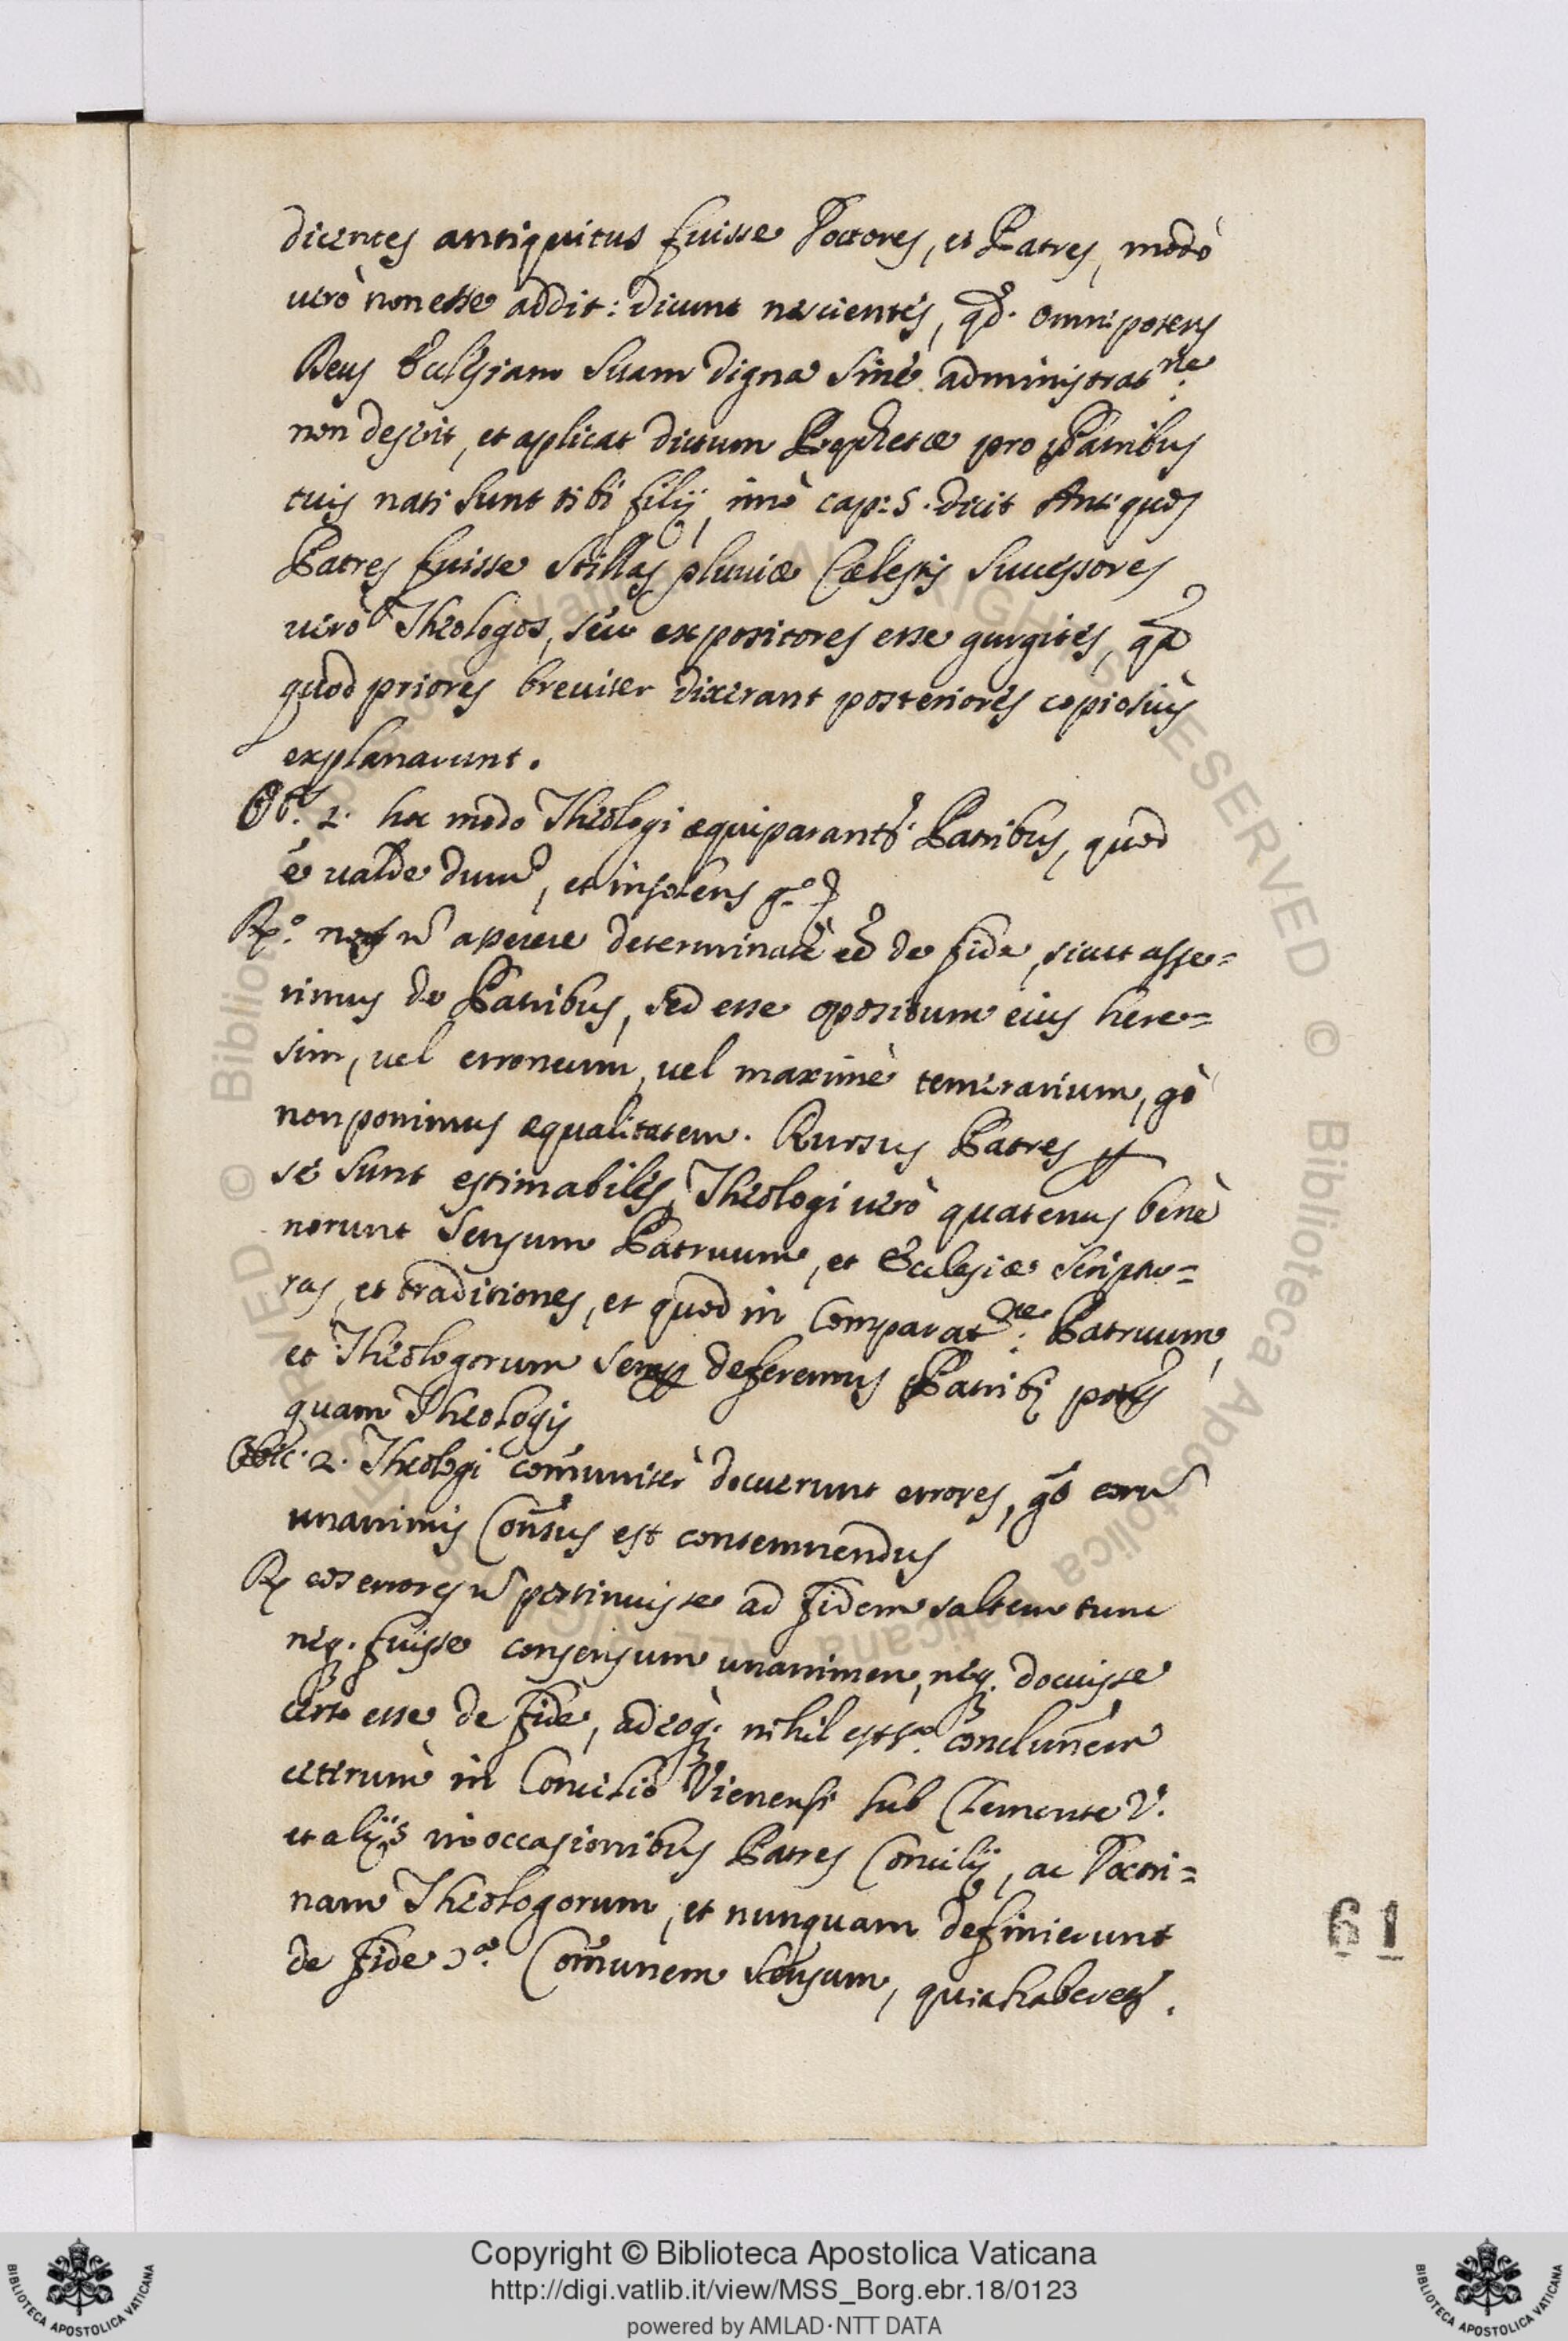 dicentes antiquitus fuisse Doctores, et Patres, modò
uerò non esse addit: dicunt nescientes, qd. omnipotens
Deus Ecclesiam suam digna sine administratne.
non deserit, et aplicat dictum Prophetæ pro Patribus
tuis nati sunt tibi filij, imò cap: 5. dicit Antiquos
Patres fuisse stillas pluuiæ Cælestis successores
uerò Theologos, seu expositores esse gurgites, qa
quod priores breuiter dixerant posteriores copiosiùs
explanarunt.
Ob. 2. hoc modo Theologi æquiparantr. Patribus, quod
ē ualde durū, et insolens go.
Ro. nos nō aperere determinatè eē de fide, sicut asse=
rimus de Patribus, sed esse opositum eius here=
sim, uel erroneum, uel maximè temerarium, gò
non ponimus æqualitatem. Rursus Patres per
se sunt estimabiles, Theologi uerò quatenus benè
norunt sensum Patruum, et Ecclesiæ scriptu=
ras, et traditiones, et quod in Comparatne. Patruum,
et Theologorum semp deferemus Patribq
quam Theologis
Obic. 2. Theologi com̄uniter docuerunt errores, gō eorū
unanimis Con̄sus est contemnendus
R eos errores nō pertinuisse ad fidem saltem tunc
neq. fuisse consensum unanimem, neq. docuisse
certo esse de fide, adeoq. nihil est
ceterum in Concilio Vienensi sub Clemente V.
et alijs in occasionibus Patres Concilij, ac Doctri=
nam Theologorum, et nunquam definierunt
de fide Com̄unem sensum, quia haberetr.
61
Copyright © Biblioteca Apostolica Vaticana
http://digi.vatlib.it/view/MSS_Borg.ebr.18/0123
powered by AMLAD·NTT DATA